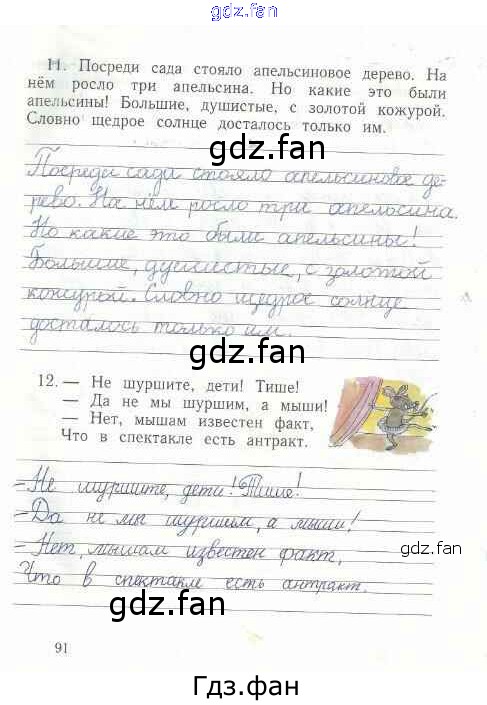 gdz.fan
11. Посреди сада стояло апельсиновое дерево. На
нём росло три апельсина. Но какие это были
апельсины! Большие, душистые, с золотой кожурой.
Словно щедрое солнце досталось только им.
gdz.fan
Посреди сада стояло апельсиновое де-
рево. На нём росло три апельсина.
Но какие это были апельсины!
Большие, душистые, с золотой
кожурой. Словно щедрое солнце
досталось только им.
gdz.fan
12. — Не шуршите, дети! Тише!
— Да не мы шуршим, а мыши!
— Нет, мышам известен факт,
Что в спектакле есть антракт.
gdz.fan
- Не шуршите, дети! Тише!
- Да не мы шуршим, а мыши!
- Нет, мышам известен факт,
Что в спектакле есть антракт.
gdz.fan
gdz.fan
91
Гдз.фан